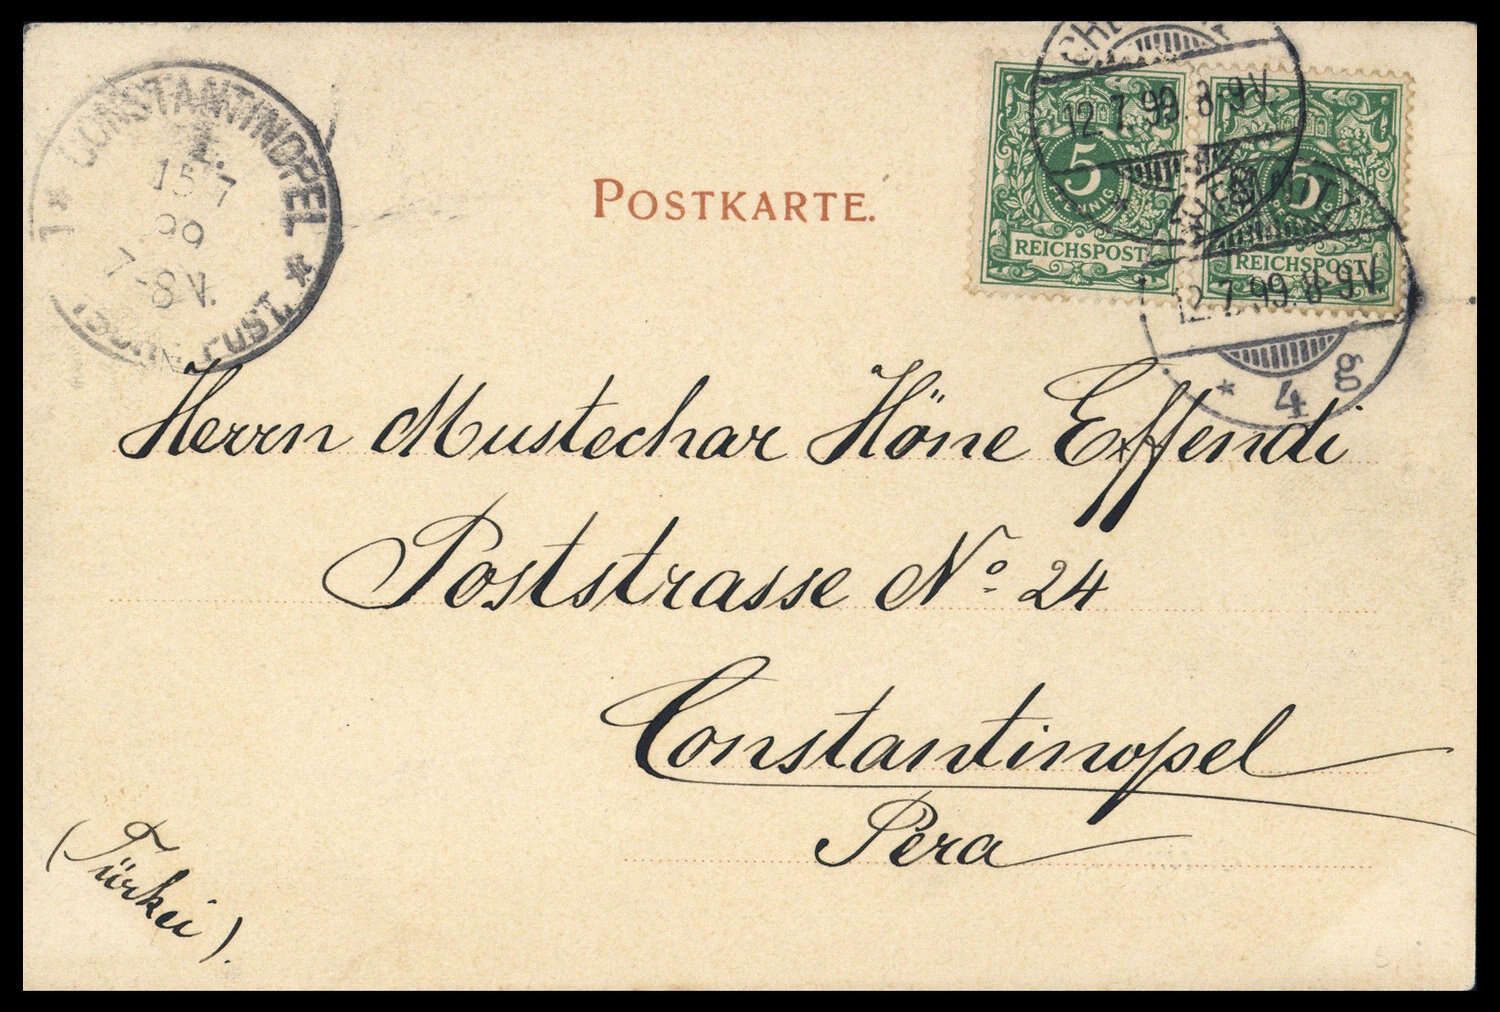 1 * CONSTANTINOPEL *
15 7
99
7-8 V.
POST.
POSTKARTE.
12.7.99. 8-9V.
12.7.99. 8-9V.
* 4 g
5
REICHSPOST
5
REICHSPOST
Herrn Mustechar Höne Effendi
Poststrasse No. 24
Constantinopel
Pera
(Türkei).